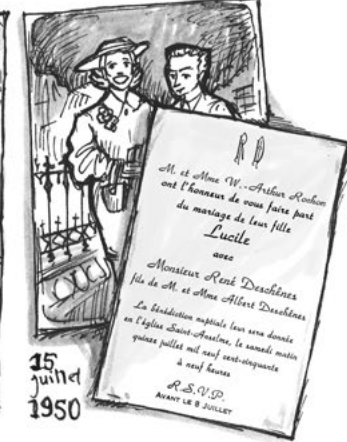 R D
M. et Mme W.-Arthur Rochon
ont l'honneur de vous faire part
du mariage de leur fille
Lucile
avec
Monsieur René Deschênes
fils de M. et Mme Albert Deschênes
La bénédiction nuptiale leur sera donnée
en l'église Saint-Anselme, le samedi matin
quinze juillet mil neuf cent-cinquante
à neuf heures
R.S.V.P.
AVANT LE 8 JUILLET
15
juillet
1950